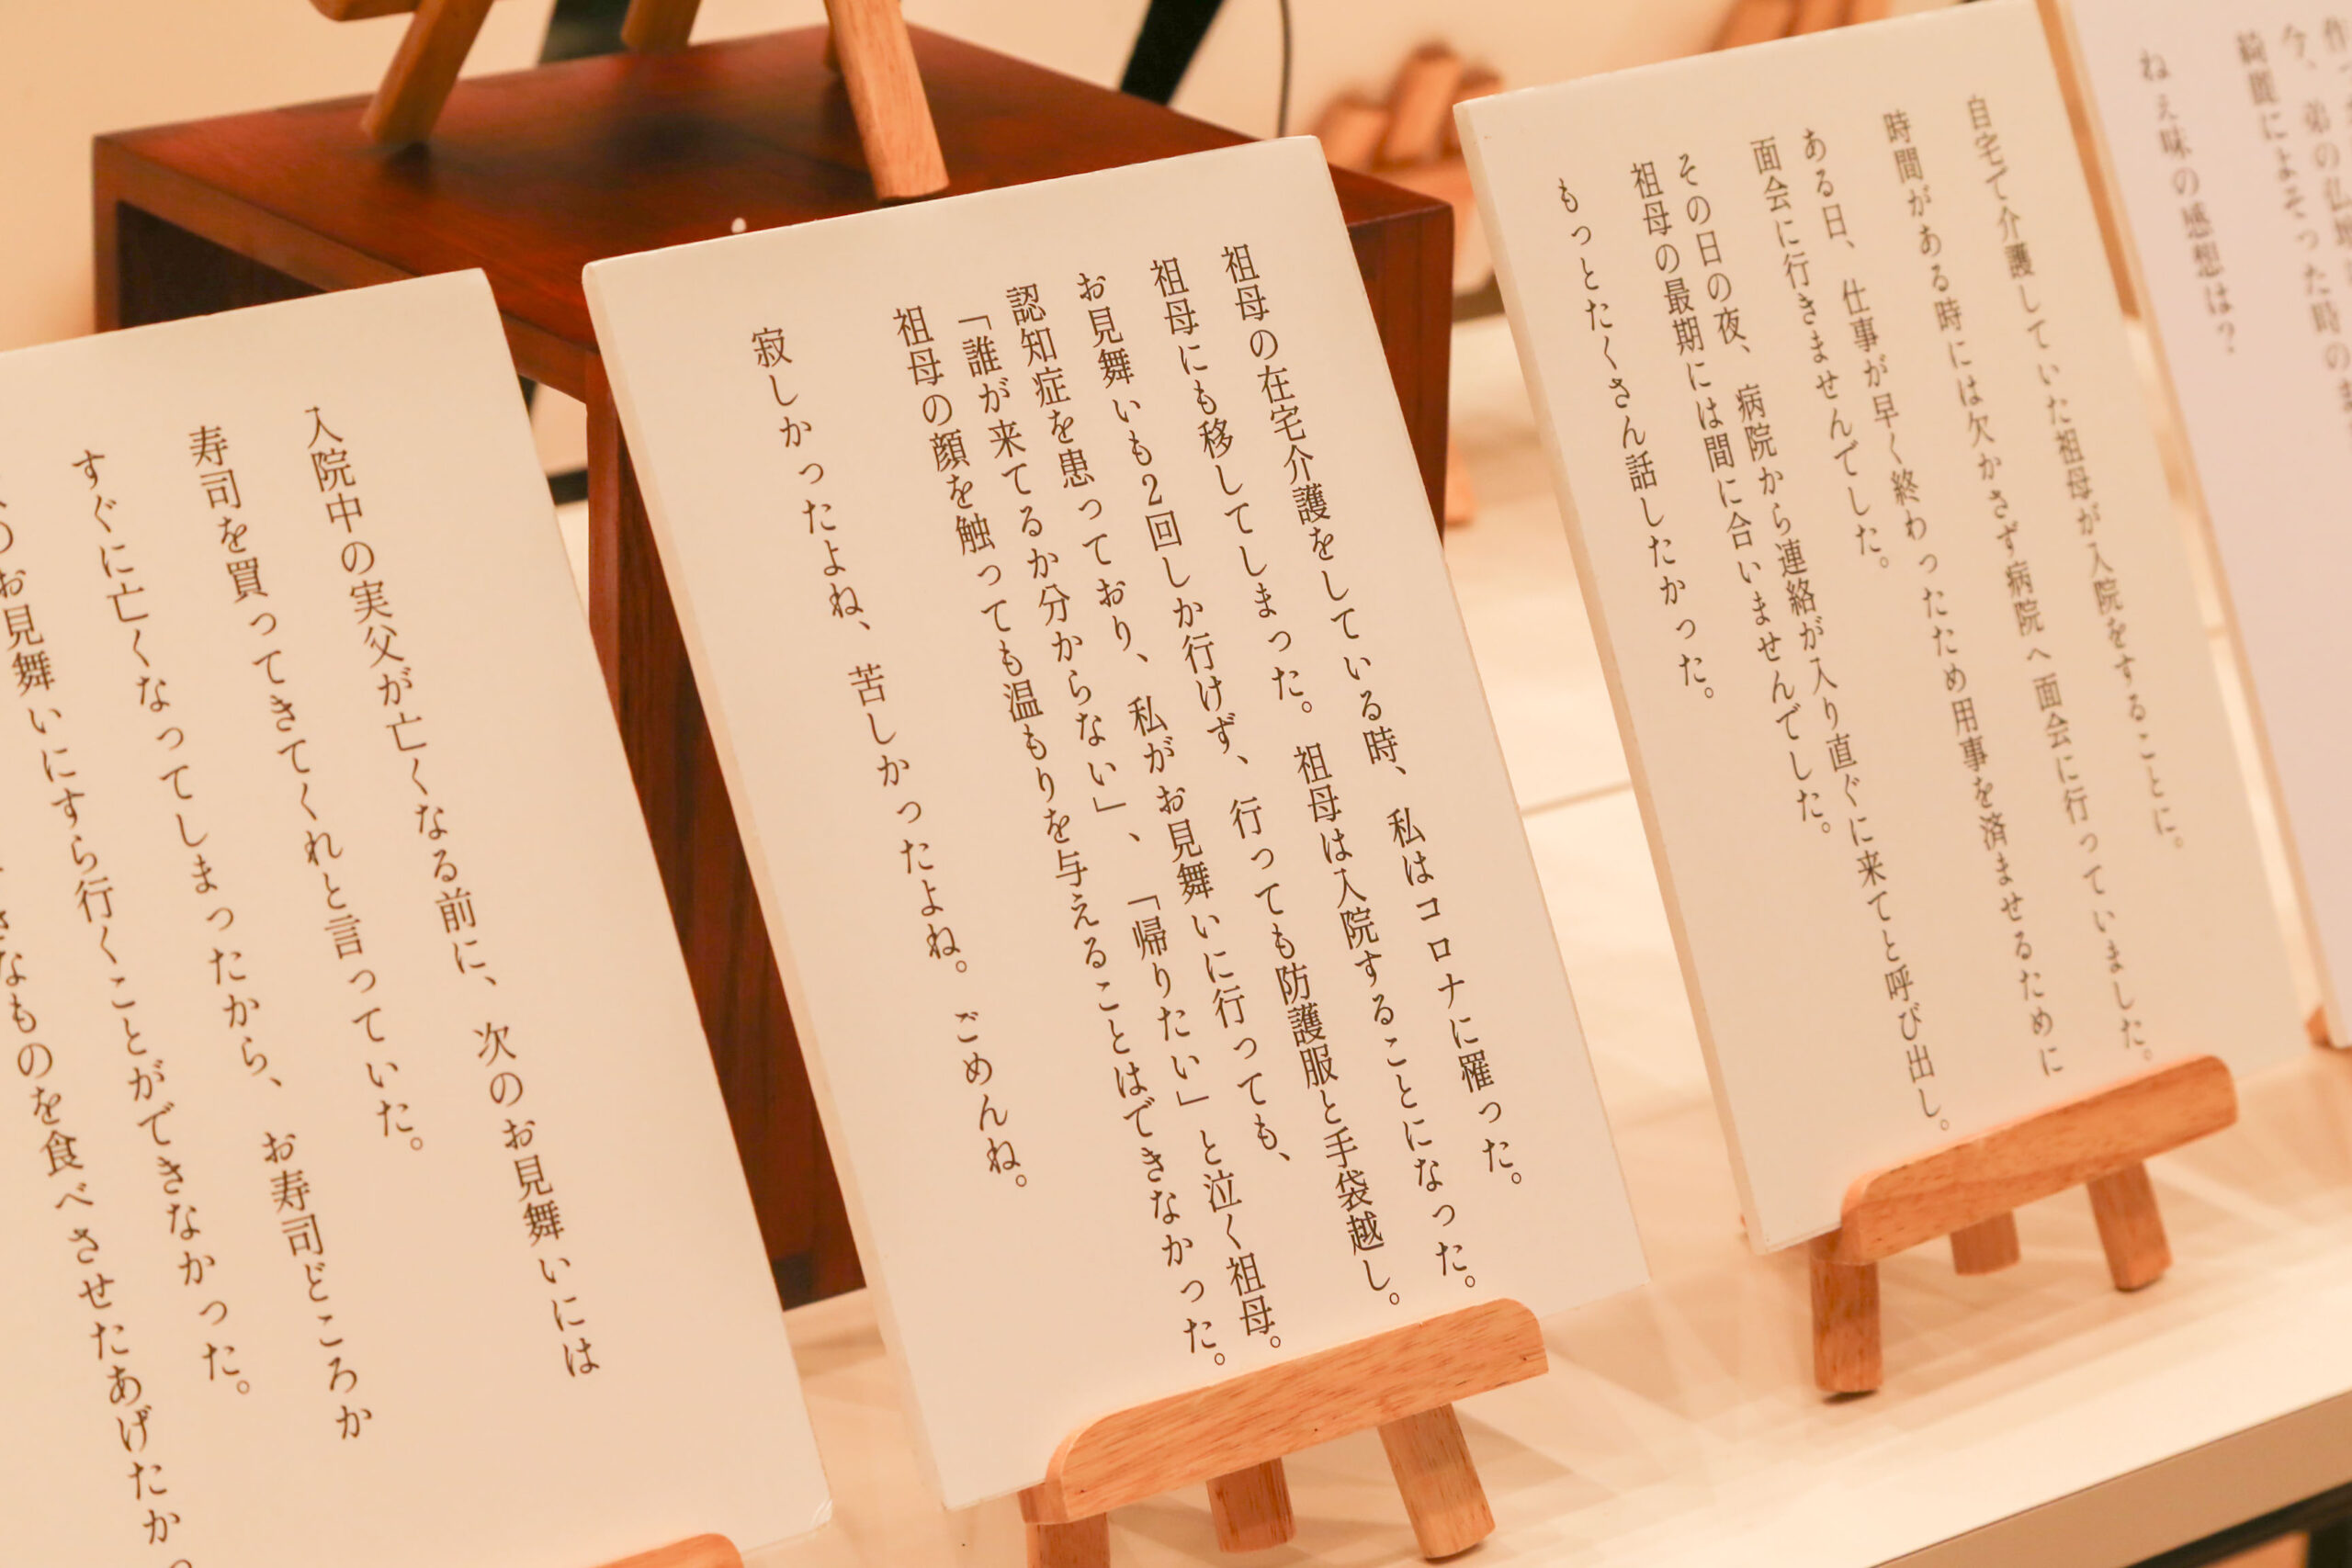 綺麗によそった時の
ねぇ味の感想は?
自宅で介護していた祖母が入院をすることに。
時間がある時には欠かさず病院へ面会に行っていました。
ある日、仕事が早く終わったため用事を済ませるために
面会に行きませんでした。
その日の夜、病院から連絡が入り直ぐに来てと呼び出し。
祖母の最期には間に合いませんでした。
もっとたくさん話したかった。
祖母の在宅介護をしている時、私はコロナに罹った。
祖母にも移してしまった。祖母は入院することになった。
お見舞いも2回しか行けず、行っても防護服と手袋越し。
認知症を患っており、私がお見舞いに行っても、
「誰が来てるか分からない」、「帰りたい」と泣く祖母。
祖母の顔を触っても温もりを与えることはできなかった。
寂しかったよね、苦しかったよね。ごめんね。
入院中の実父が亡くなる前に、次のお見舞いには
寿司を買ってきてくれと言っていた。
すぐに亡くなってしまったから、お寿司どころか
のお見舞いにすら行くことができなかった。
きなものを食べさせたあげたかっ